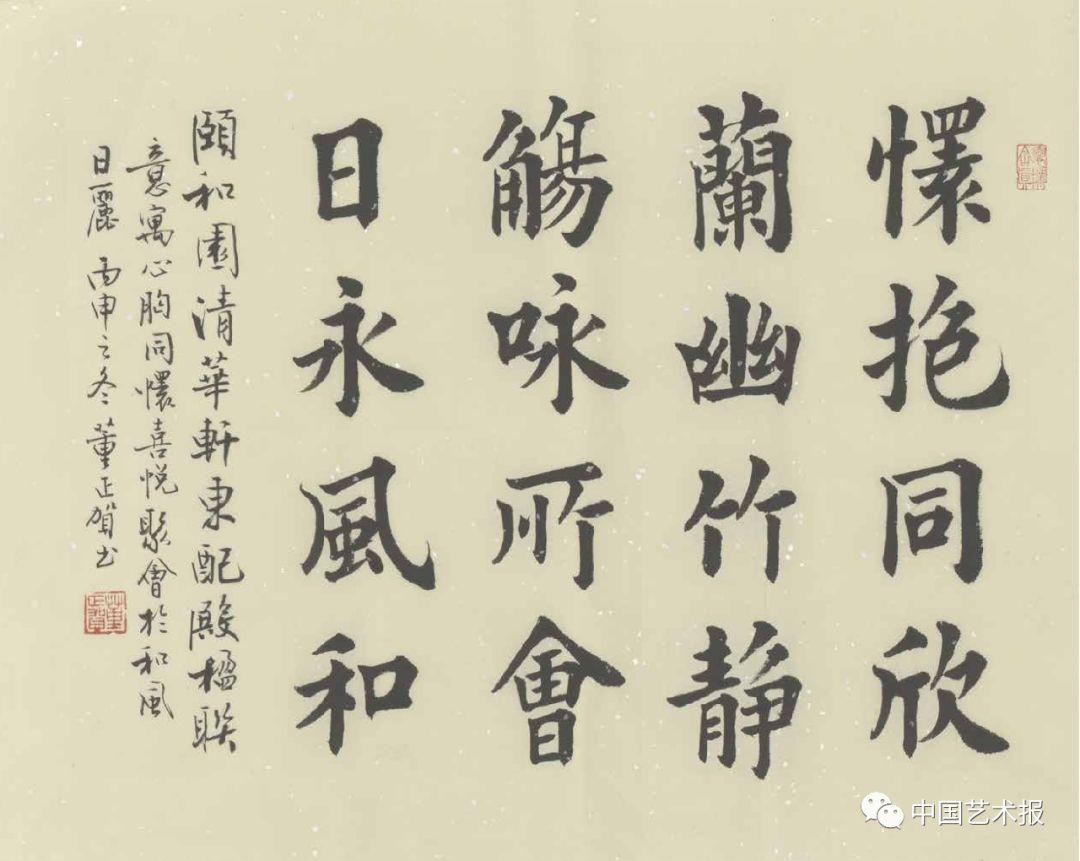 懷抱同欣
蘭幽竹静
觴咏所會
日永風和
頤和園清華軒東配殿楹联
意寓心胸同懷喜悦聚會於和風
日麗 丙申之冬董正賀书
董正賀
中国艺术报